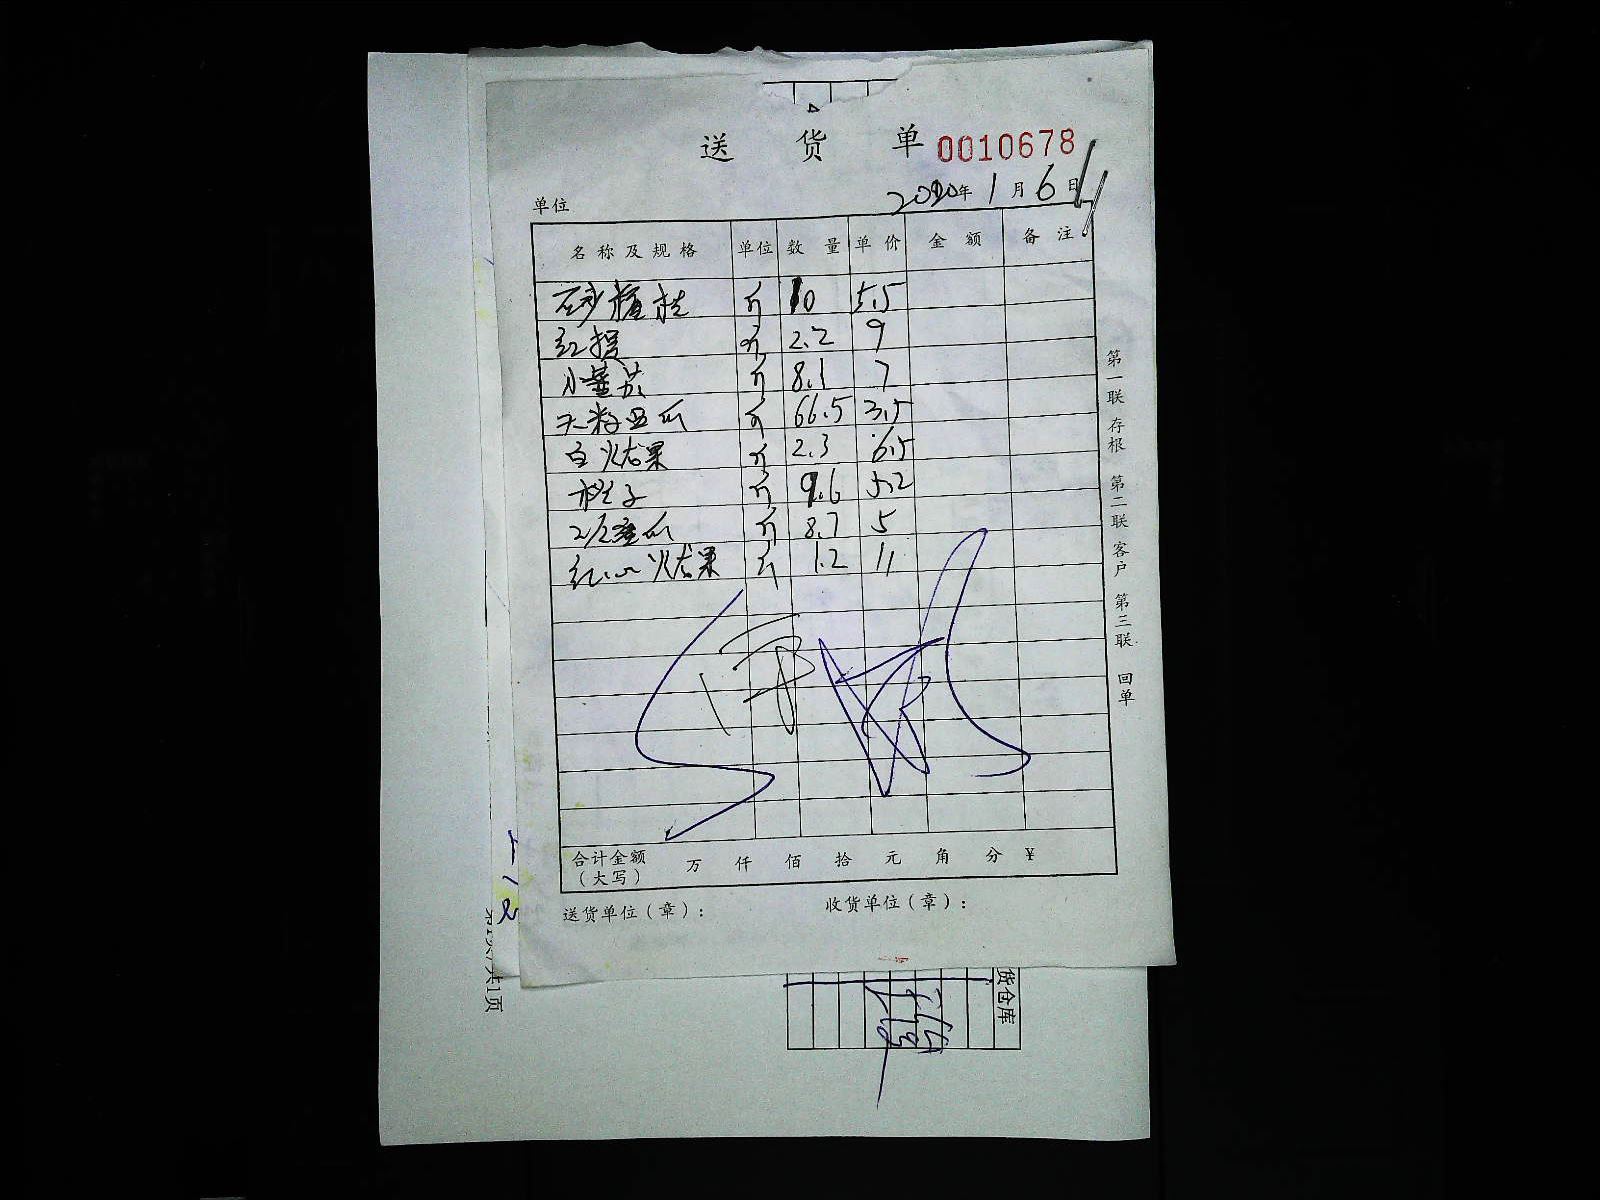 送 货 单 0010678
2020年 1月 6日
单位
名称及规格 单位 数 量 单 价 金 额 备 注
砂糖桔 斤 10 5.5
红提 斤 2.2 9
小番茄 斤 8.1 7
无籽西瓜 斤 66.5 3.5
白火龙果 斤 2.3 6.5
橙子 斤 9.6 5.2
斤 8.7 5
红心火龙果 斤 1.2 11
合计金额
（大写） 万 仟 佰 拾 元 角 分 ¥
送货单位（章）： 收货单位（章）：
第一联 存根 第二联 客户 第三联 回单
货仓库
共1页